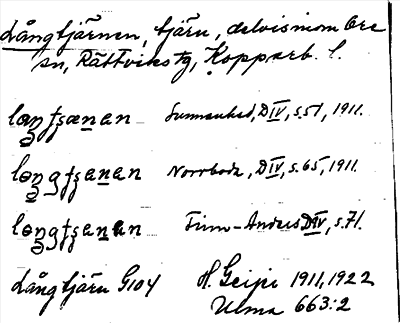 Långtjärnen, tjärn, delvis inom Ore
sn, Rättviks tg, Kopparb. l.
laŋtʂænan Sunnanhed, DIV, s.51, 1911.
lɷŋgtʂænan Norrboda, DIV, s.65, 1911.
lɷŋgtʂænan Finn-Anders DIV, s.71.
Långtjärn G104 H. Geijer 1911, 1922
Ulma 663:2